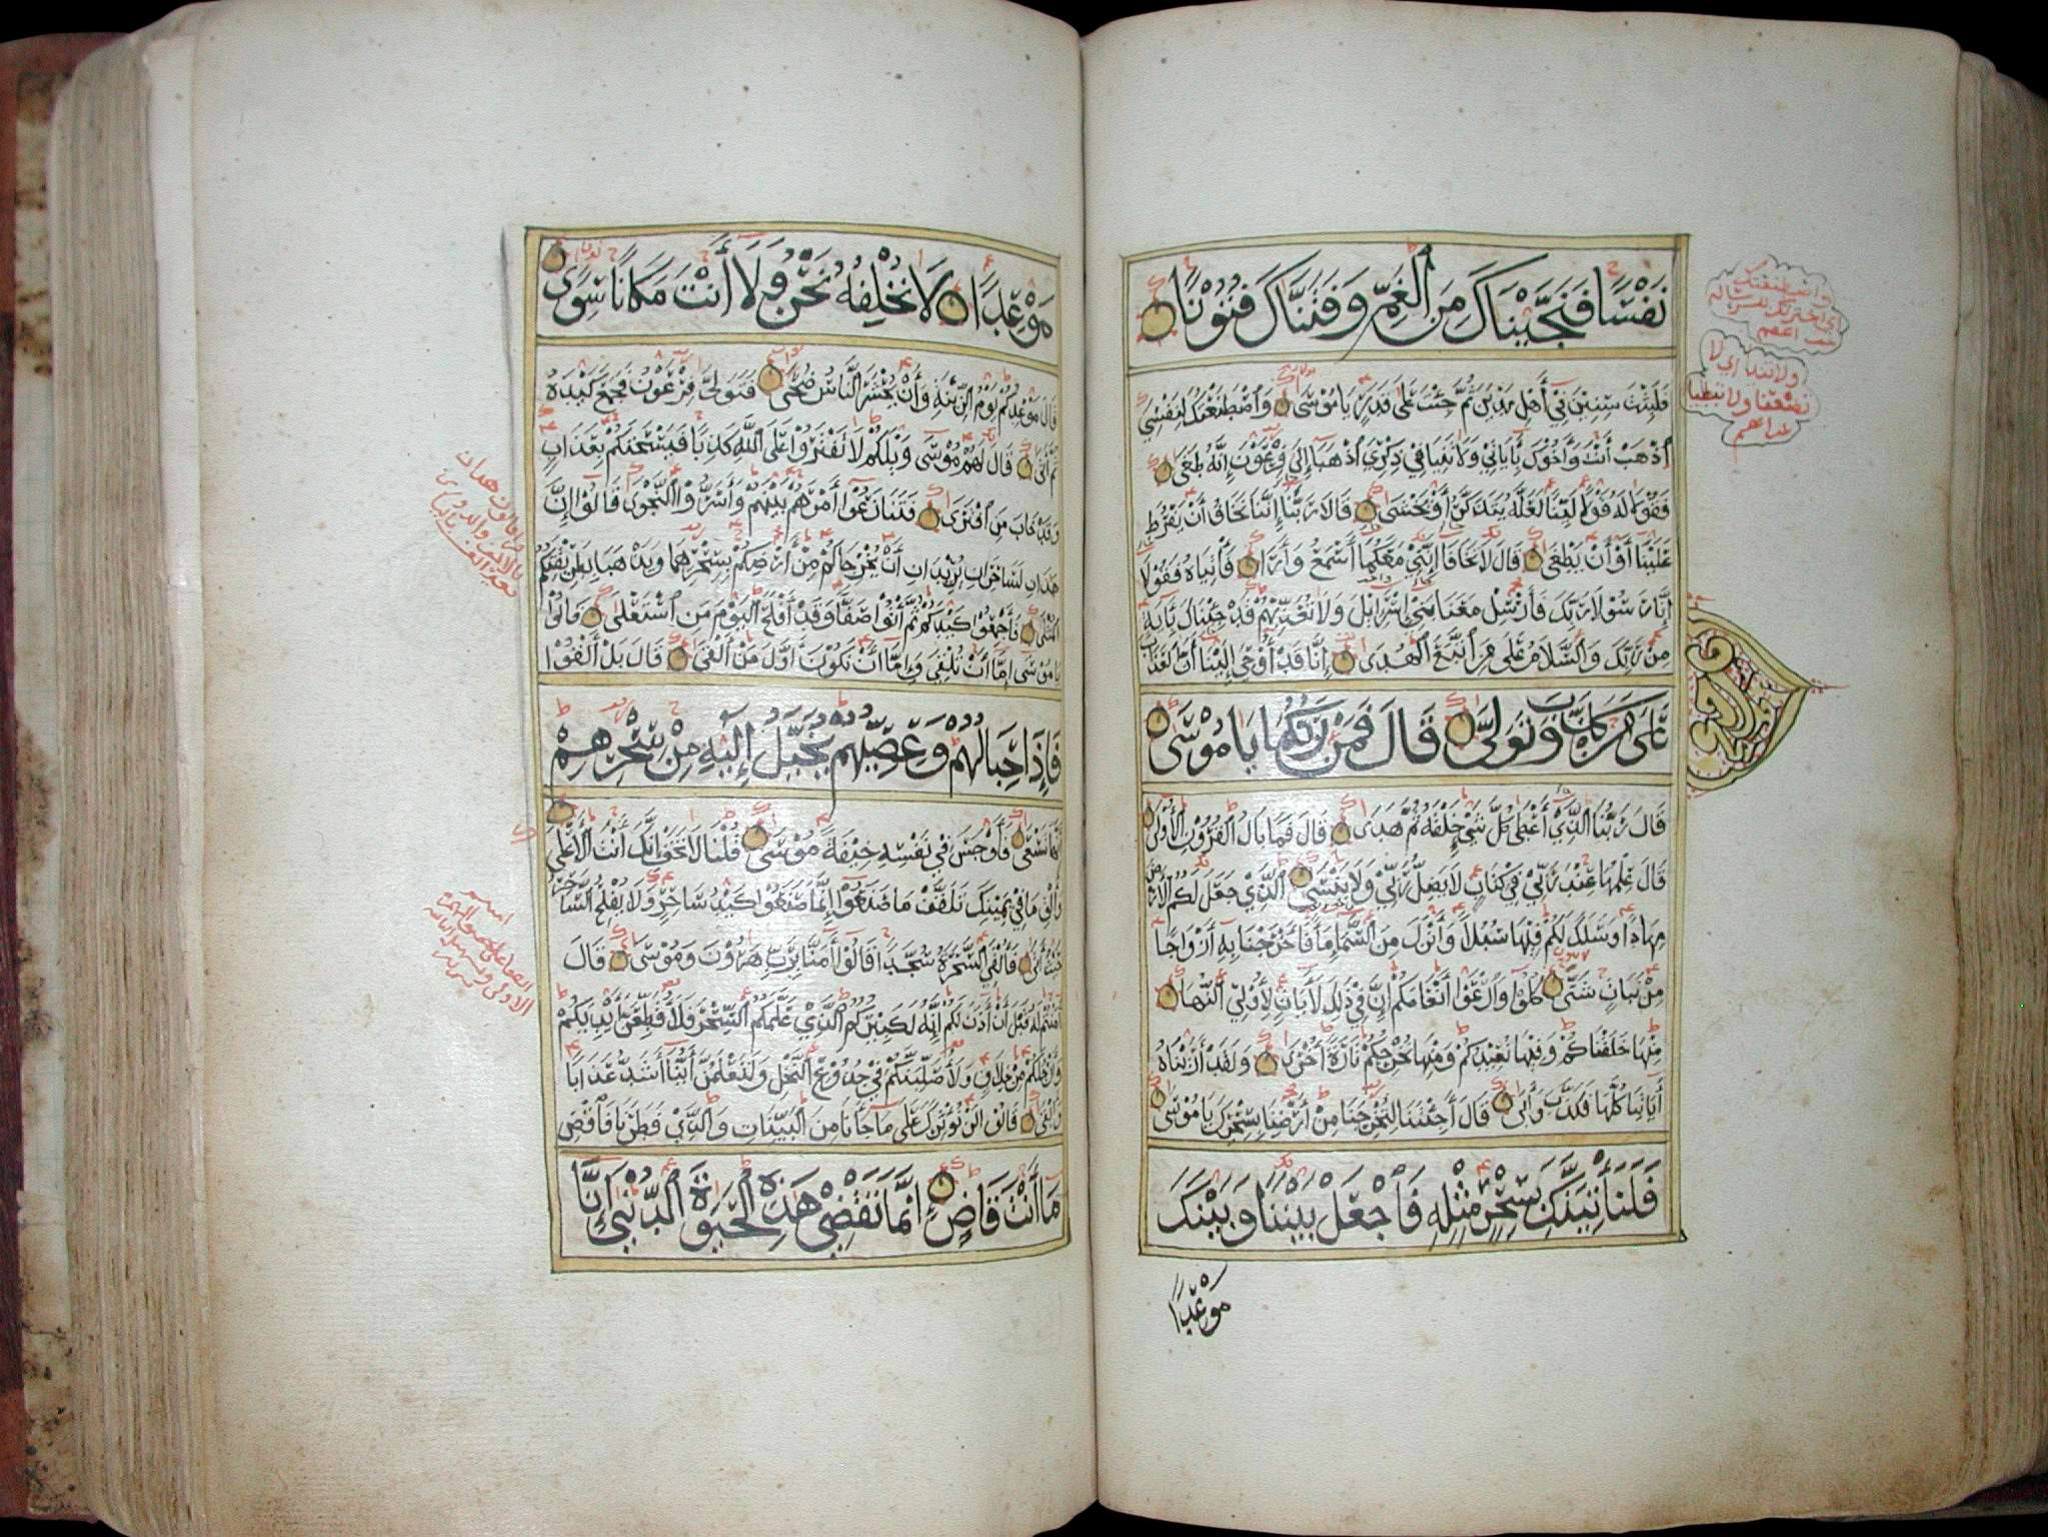 نَفْسًا فَنَجَّيْنَاكَ مِنَ ٱلْغَمِّ وَفَتَنَّاكَ فُتُوْنًا
فَلَبِثْتَ سِنِيْنَ فِيْ أَهْلِ مَدْيَنَ ثُمَّ جِئْتَ عَلَى قَدَرٍ يَا مُوْسَى وَٱصْطَنَعْتُكَ لِنَفْسِيْ
ٱذْهَبْ أَنْتَ وَأَخُوْكَ بِأَيَاتِيْ وَلَا تَنِيَا فِيْ ذِكْرِيْ ٱذْهَبَا إِلَى فِرْعَوْنَ إِنَّهُ طَغَى
فَقُوْلَا لَهُ قَوْلًا لَيِّنًا لَعَلَّهُ يَتَذَكَّرُ أَوْ يَخْشَى قَالَا رَبَّنَا إِنَّنَا نَخَافُ أَنْ يَفْرُطَ
عَلَيْنَا أَوْ أَنْ يَطْغَى قَالَ لَا تَخَافَا إِنَّنِيْ مَعَكُمَا أَسْمَعُ وَأَرَى فَأْتِيَاهُ فَقُوْلَا
إِنَّا رَسُوْلَا رَبِّكَ فَأَرْسِلْ مَعَنَا بَنِيْ إِسْرَائِيْلَ وَلَا تُعَذِّبْهُمْ قَدْ جِئْنَاكَ بِأَيَةٍ
مِنْ رَبِّكَ وَٱلسَّلَامُ عَلَى مَنِ ٱتَّبَعَ ٱلْهُدَى إِنَّا قَدْ أُوْحِيَ إِلَيْنَا أَنَّ ٱلْعَذَابَ
عَلَى مَنْ كَذَّبَ وَتَوَلَّى قَالَ فَمَنْ رَبُّكُمَا يَا مُوْسَى
قَالَ رَبُّنَا ٱلَّذِيْ أَعْطَى كُلَّ شَيْءٍ خَلْقَهُ ثُمَّ هَدَى قَالَ فَمَا بَالُ ٱلْقُرُوْنِ ٱلْأُوْلَى
قَالَ عِلْمُهَا عِنْدَ رَبِّيْ فِيْ كِتَابٍ لَا يَضِلُّ رَبِّيْ وَلَا يَنْسَى ٱلَّذِيْ جَعَلَ لَكُمُ ٱلْأَرْضَ
مِهَادًا وَسَلَكَ لَكُمْ فِيْهَا سُبُلًا وَأَنْزَلَ مِنَ ٱلسَّمَاءِ مَاءً فَأَخْرَجْنَا بِهِ أَزْوَاجًا
مِنْ نَبَاتٍ شَتَّى كُلُوْا وَٱرْعَوْا أَنْعَامَكُمْ إِنَّ فِيْ ذٰلِكَ لَأَيَاتٍ لِأُوْلِيْ ٱلنُّهَى
مِنْهَا خَلَقْنَاكُمْ وَفِيْهَا نُعِيْدُكُمْ وَمِنْهَا نُخْرِجُكُمْ تَارَةً أُخْرَى وَلَقَدْ أَرَيْنَاهُ
أَيَاتِنَا كُلَّهَا فَكَذَّبَ وَأَبَى قَالَ أَجِئْتَنَا لِتُخْرِجَنَا مِنْ أَرْضِنَا بِسِحْرِكَ يَا مُوْسَى
فَلَنَأْتِيَنَّكَ بِسِحْرٍ مِثْلِهِ فَٱجْعَلْ بَيْنَنَا وَبَيْنَكَ
مَوْعِدًا
مَوْعِدًا لَا نُخْلِفُهُ نَحْنُ وَلَا أَنْتَ مَكَانًا سُوًى
قَالَ مَوْعِدُكُمْ يَوْمُ ٱلزِّيْنَةِ وَأَنْ يُحْشَرَ ٱلنَّاسُ ضُحًى فَتَوَلَّى فِرْعَوْنُ فَجَمَعَ كَيْدَهُ
ثُمَّ أَتَى قَالَ لَهُمْ مُوْسَى وَيْلَكُمْ لَا تَفْتَرُوْا عَلَى ٱللَّهِ كَذِبًا فَيُسْحِتَكُمْ بِعَذَابٍ
وَقَدْ خَابَ مَنِ ٱفْتَرَى فَتَنَازَعُوْا أَمْرَهُمْ بَيْنَهُمْ وَأَسَرُّوْا ٱلنَّجْوَى قَالُوْا إِنَّ
هَذَانِ لَسَاحِرَانِ يُرِيْدَانِ أَنْ يُخْرِجَاكُمْ مِنْ أَرْضِكُمْ بِسِحْرِهِمَا وَيَذْهَبَا بِطَرِيْقَتِكُمُ
ٱلْمُثْلَى فَأَجْمِعُوْا كَيْدَكُمْ ثُمَّ ٱئْتُوْا صَفًّا وَقَدْ أَفْلَحَ ٱلْيَوْمَ مَنِ ٱسْتَعْلَى قَالُوْا
يَا مُوْسَى إِمَّا أَنْ تُلْقِيَ وَإِمَّا أَنْ نَكُوْنَ أَوَّلَ مَنْ أَلْقَى قَالَ بَلْ أَلْقُوْا
فَإِذَا حِبَالُهُمْ وَعِصِيُّهُمْ يُخَيَّلُ إِلَيْهِ مِنْ سِحْرِهِمْ
أَنَّهَا تَسْعَى فَأَوْجَسَ فِيْ نَفْسِهِ خِيْفَةً مُوْسَى قُلْنَا لَا تَخَفْ إِنَّكَ أَنْتَ ٱلْأَعْلَى
وَأَلْقِ مَا فِيْ يَمِيْنِكَ تَلْقَفْ مَا صَنَعُوْا إِنَّمَا صَنَعُوْا كَيْدُ سَاحِرٍ وَلَا يُفْلِحُ ٱلسَّاحِرُ
حَيْثُ أَتَى فَأُلْقِيَ ٱلسَّحَرَةُ سُجَّدًا قَالُوْا أَمَنَّا بِرَبِّ هَرُوْنَ وَمُوْسَى قَالَ
أَمَنْتُمْ لَهُ قَبْلَ أَنْ أَذَنَ لَكُمْ إِنَّهُ لَكَبِيْرُكُمُ ٱلَّذِيْ عَلَّمَكُمُ ٱلسِّحْرَ فَلَأُقَطِّعَنَّ أَيْدِيَكُمْ
وَأَرْجُلَكُمْ مِنْ خِلَافٍ وَلَأُصَلِّبَنَّكُمْ فِيْ جُذُوْعِ ٱلنَّخْلِ وَلَتَعْلَمُنَّ أَيُّنَا أَشَدُّ عَذَابًا
وَأَبْقَى قَالُوْا لَنْ نُؤْثِرَكَ عَلَى مَا جَاءَنَا مِنَ ٱلْبَيِّنَاتِ وَٱلَّذِيْ فَطَرَنَا فَٱقْضِ
مَا أَنْتَ قَاضٍ إِنَّمَا تَقْضِيْ هَذِهِ ٱلْحَيَوٰةَ ٱلدُّنْيَا إِنَّا